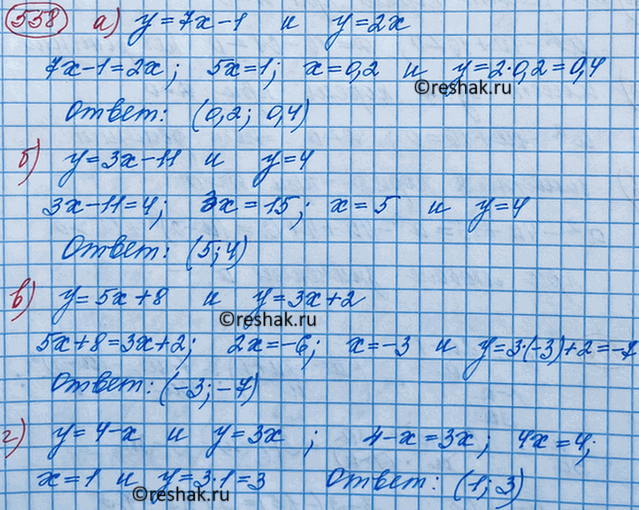 558 а) y=7x-1 и y=2x
7x-1=2x; 5x=1; x=0,2 и y=2·0,2=0,4
©reshak.ru
Ответ: (0,2; 0,4)
б) y=3x-11 и y=4
3x-11=4; 3x=15; x=5 и y=4
Ответ: (5;4)
в) y=5x+8 и y=3x+2
©reshak.ru
5x+8=3x+2; 2x=-6; x=-3 и y=3·(-3)+2=-7
Ответ: (-3;-7)
г) y=4-x и y=3x; 4-x=3x; 4x=4;
x=1 и y=3·1=3 Ответ: (1; 3)
©reshak.ru